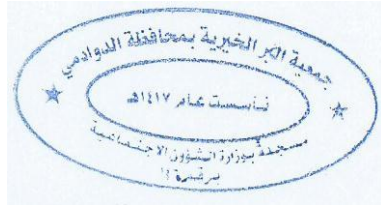 جمعية البر الخيرية بمحافظة الدوادمي
تأسست عام ١٤١٧هـ
مسجلة بوزارة الشؤون الاجتماعية
برقم